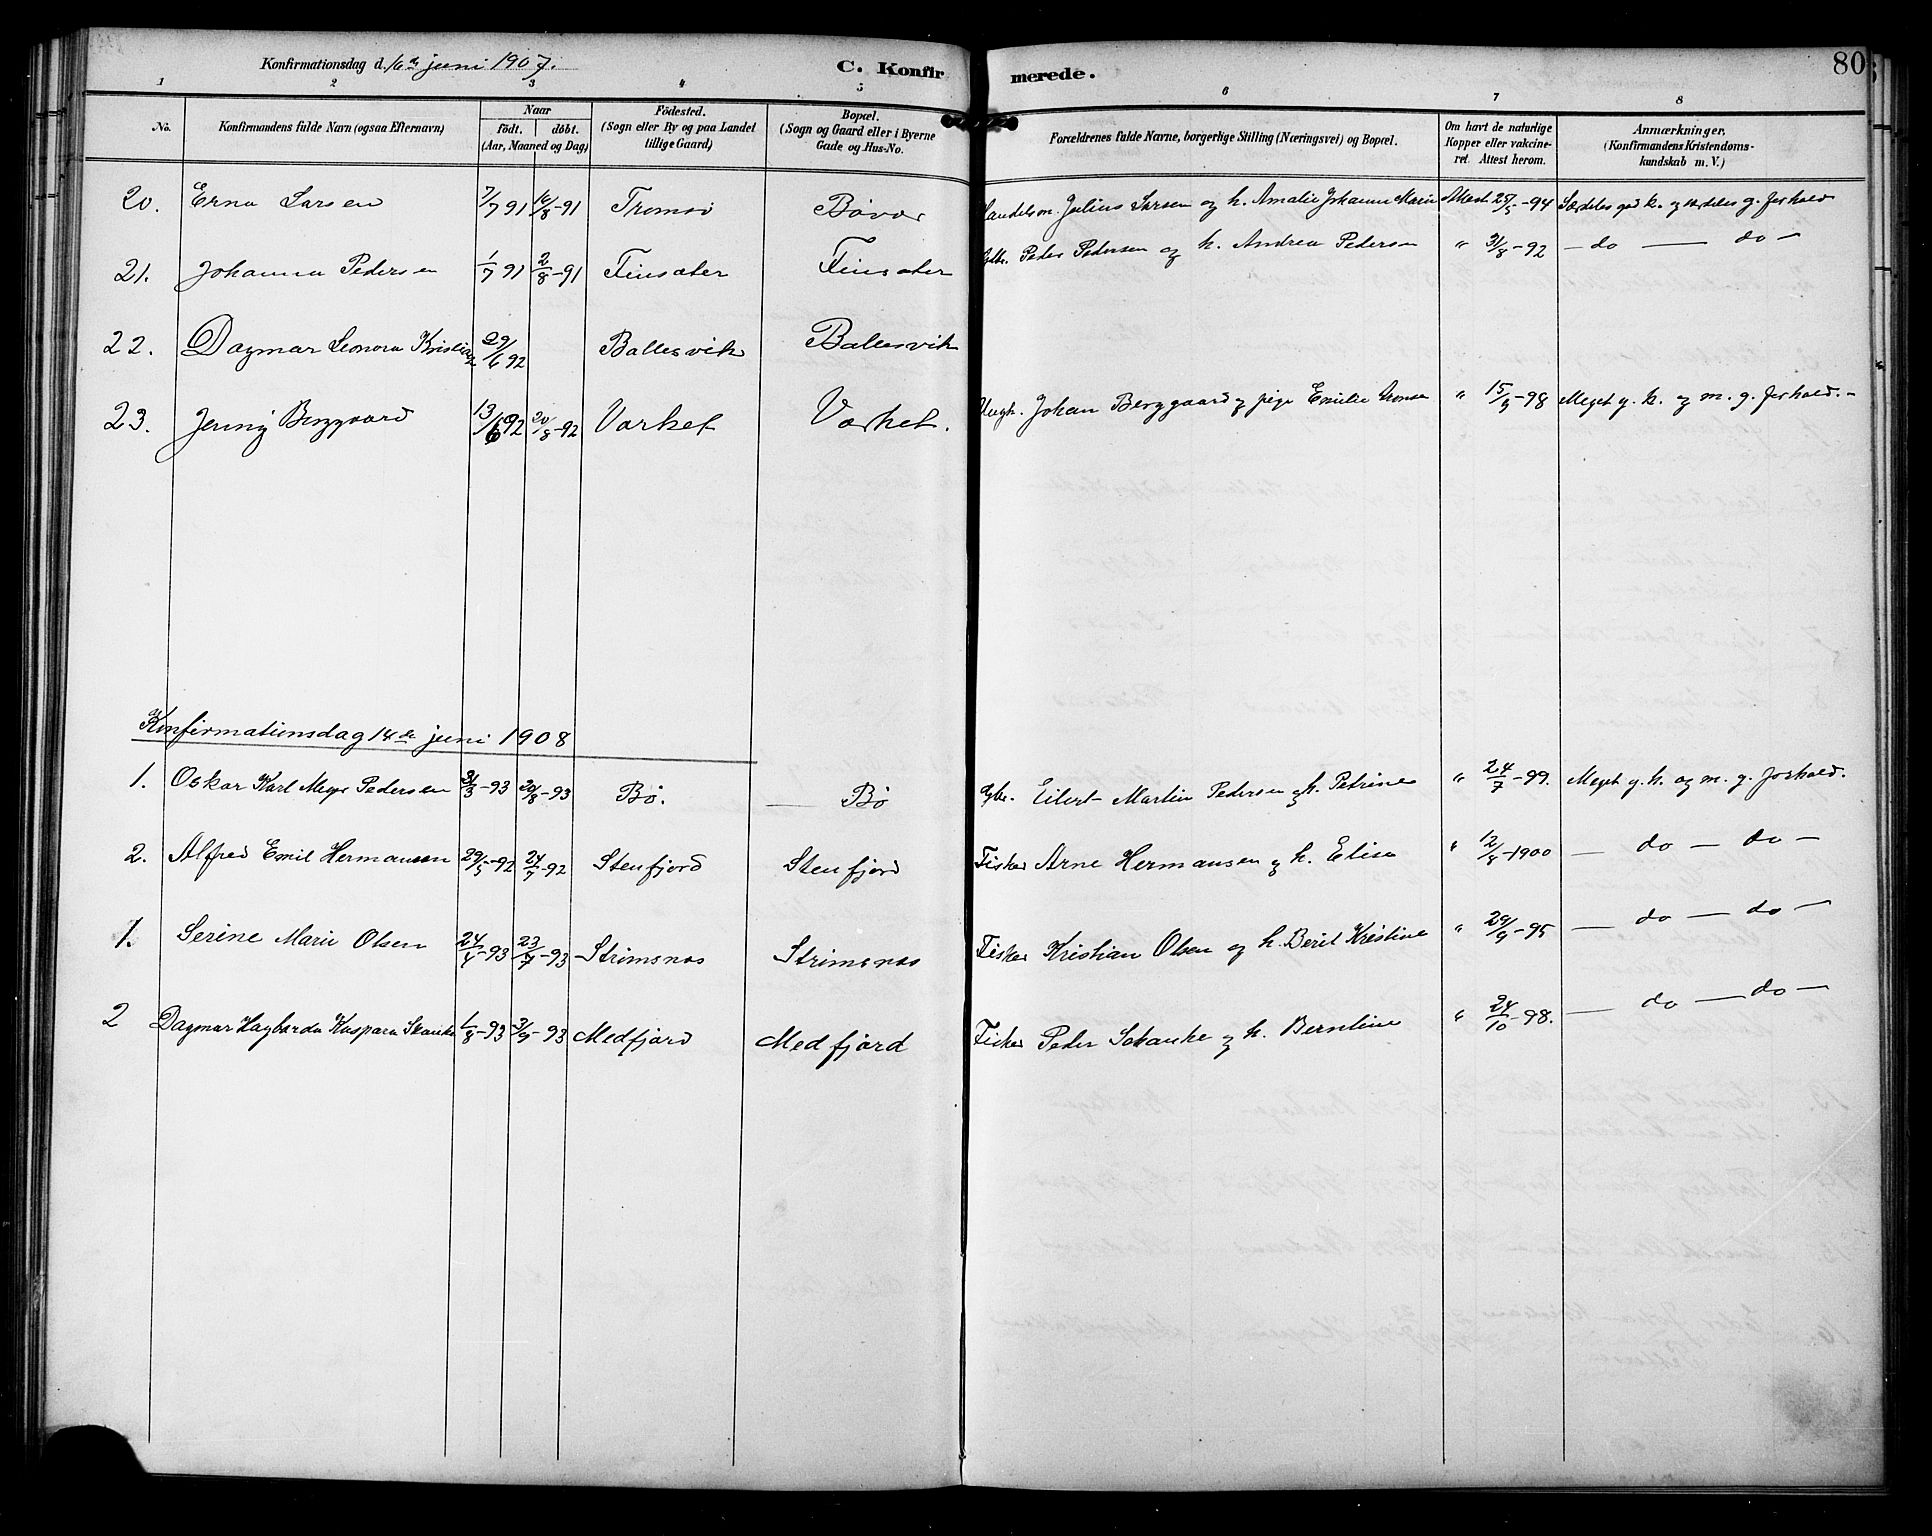 Konfirmationsdag d. 16de juni 1907.
C. Konfirmerede.
80
1 2 3 4 5 6 7 8
No.
Konfirmandens fulde Navn (ogsaa Efternavn)
Naar
født. døbt.
(Aar, Maaned og Dag)
Födested.
(Sogn eller By og paa Landet
tillige Gaard)
Bopæl.
(Sogn og Gaard eller i Byerne
Gade og Hus-No.
Forældrenes fulde Navne, borgerlige Stilling (Næringsvei) og Bopæl.
Om havt de naturlige
Kopper eller vakcine-
ret. Attest herom.
Anmærkninger.
(Konfirmandens Kristendoms-
kundskab m. V.)
20. Erna Larsen 7/7 91 16/8-91 Tromsö Bövær Handelsm. Julius Larsen og h. Amalie Johanna Marie Attest -94 Særdeles god k. og særdeles g. forhold
21. Johanna Pedersen 1/7 91 2/8-91 Finsæter Finsæter Gbr. Peder Pedersen og h. Andrea Pedersen " 31/8-92 - do - do -
22. Dagmar Leonora 29/6 92 Ballesvik Ballesvik
23. Jenny Berggaard 13/6 92 20/8-92 Varket Varket. Ungk. Johan Berggaard og pige Emilie " 15/9-98 Meget g. k. og m. g. forhold. -
Konfirmationsdag 14de juni 1908
1. Oskar Karl Meyer Pedersen 31/3-93 20/8-93 Bö. - Bö Gbr. Eilert Martin Pedersen og h. Petrine " 24/7-99. Meget g. k. og m. g. forhold.
2. Alfred Emil Hermansen 29/5-92 24/7-92 Stenfjord Stenfjord Fisker Arne Hermansen og h. Elisa " 12/8-1900 - do - do -
1. Serine Marie Olsen 24/4-93 23/7-93 Strimsnes Strimsnes Fisker Kristian Olsen og h. Berit Kristine " 29/9-95 - do - do -
2 Dagmar Hagbarda Kaspara Skanke 1/8-93 3/9-93 Medfjord Medfjord Fisker Peder Schanke og h. Berntine " 24/10-98. - do - do -